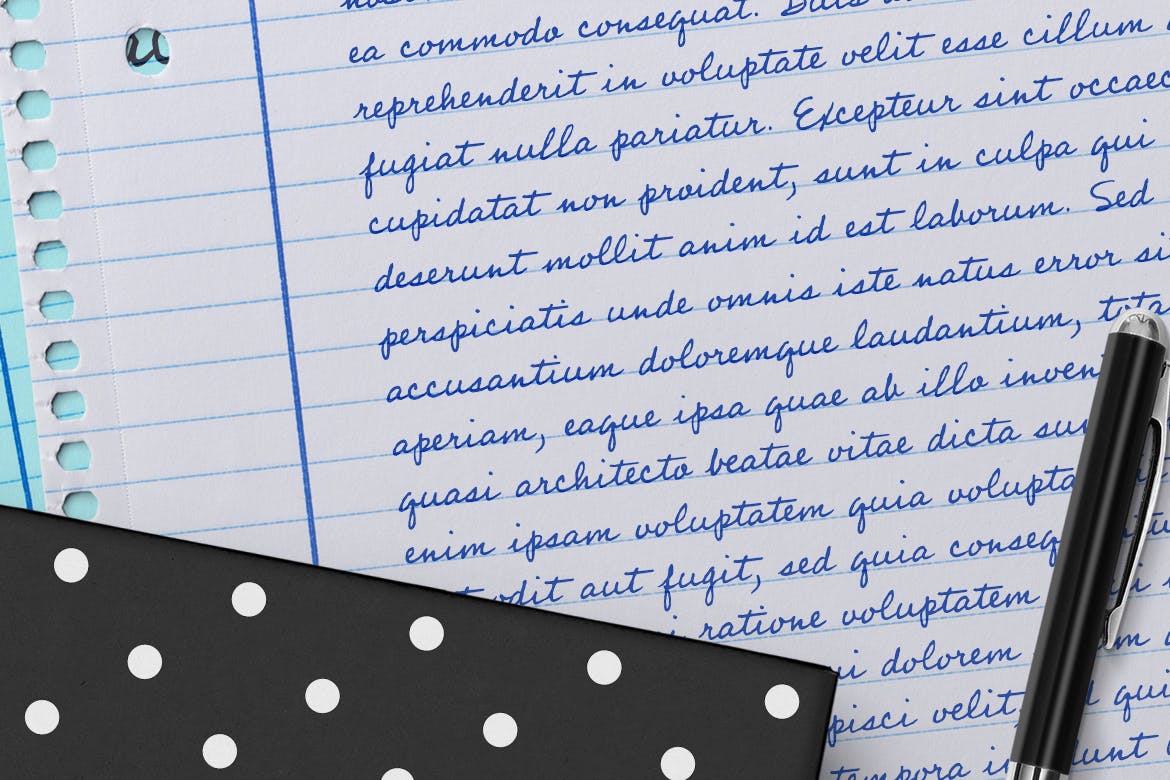 u
ea commodo consequat.
reprehenderit in voluptate velit esse cillum
fugiat nulla pariatur. Excepteur sint occaec
cupidatat non proident, sunt in culpa qui
deserunt mollit anim id est laborum. Sed
perspiciatis unde omnis iste natus error si
accusantium doloremque laudantium, tota
aperiam, eaque ipsa quae ab illo inven
quasi architecto beatae vitae dicta sun
enim ipsam voluptatem quia volupta
odit aut fugit, sed quia conseq
ratione voluptatem
ui dolorem
pisci velit, qui
tempora in dunt